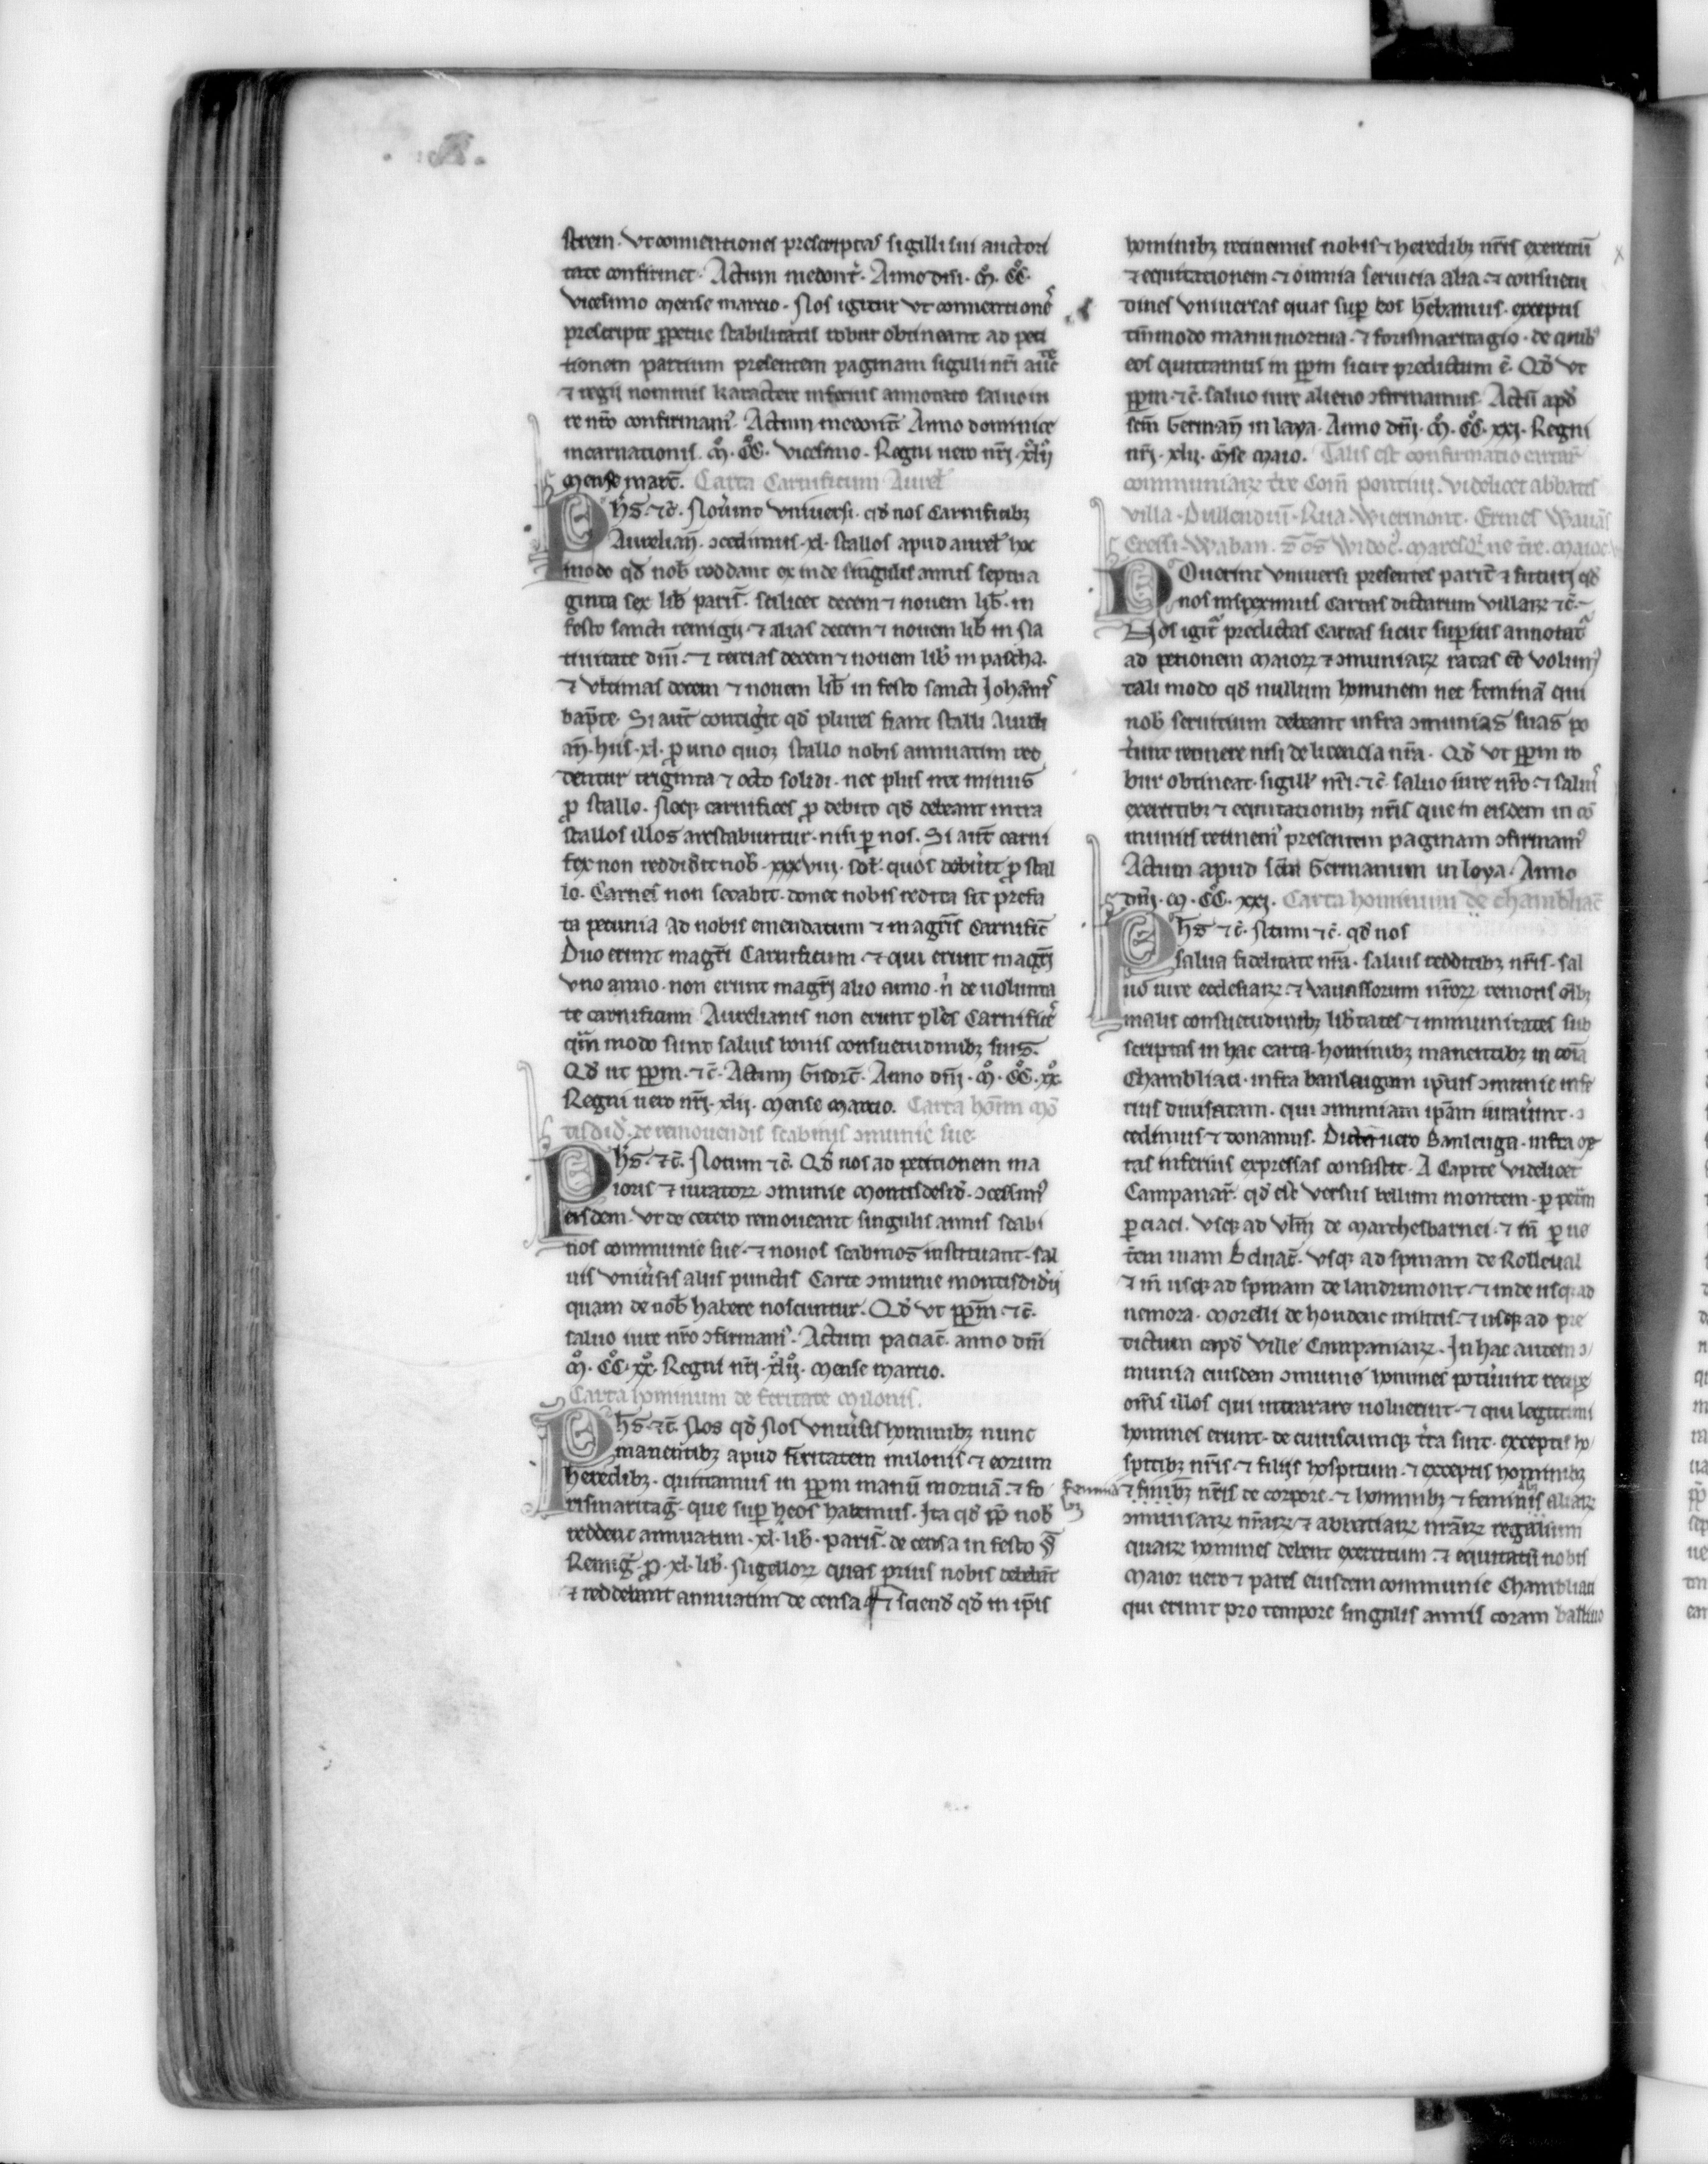 strem. Vt conuentiones prescriptas sigilli sui auctori
tate confirmet. Actum medont̄. Anno dn̄i. M̊. CC̊.
vicesimo mense marcio. Nos igitur vt conuentione᷒
prescripte ꝑpetue stabilitatis robur obtineant ad peti
tionem partium presentem paginam sigilli nr̄i auc̄te
⁊ regii nominis karactere inferius annotato saluo iu
re nr̄o confirmamꝰ. Actum medont̄ Anno dominice
incarnationis. M̊. CC̊. vicesimo. Regni uero nr̄i. xl̊ij̊
mense marc̄. Carta Carnificum Aurel̄
Ph̄s. ⁊c̄. Nouerint vniuersi. qd̄ nos Carnificibꝫ
Aurelian̄. ↄcedimus. xl. stallos apud aurel̄ hoc
modo qd̄ nob̄ reddant exinde singulis annis septua
ginta sex lib̄ paris̄. scilicet decem ⁊ nouem lib̄. in
festo sancti remigij. ⁊ alias decem ⁊ nouem lib̄ in Na
tiuitate dn̄i. ⁊ tercias decem ⁊ nouem lib̄ in pascha.
⁊ vltimas decem ⁊ nouem lib̄ in festo sancti Johānis
bap̄te. Si aut̄ contig̉it qd̄ plures fiant stalli Aureli
an̄. hiis. xl. ꝓ uno quoqꝫ stallo nobis annuatim red
dentur triginta ⁊ octo solidi. nec plus nec minus
ꝓ stallo. Necqꝫ carnifices ꝓ debito qd̄ debeant intra
stallos illos arestabuntur. nisi ꝑ nos. Si aut̄ carni
fex non reddid̉it nob̄. xxxviij. sol̄. quos debu̓it ꝓ stal
lo. Carnes non secabit. donec nobis reddita sit prefa
ta pecunia ad nobis emendatum ⁊ magr̄is Carnific̄
Duo erunt magr̄i Carnificum. ⁊ qui erunt magr̄i
vno anno. non erunt magr̄i alio anno. n̓ de uolunta
te carnificum Aurelianis non erunt pl̄es Carnifices
qͣm modo sunt saluis bonis consuetudinibꝫ suis.
Qd̄ ut ꝑpm̄. ⁊c̄. Actum Gisorc̄. Anno dn̄i. M̊. CC̊. xx̊.
Regni uero nr̄i. xlij. Mense Marcio. Carta hoīm mō
tisdid̄. de remouendis scabinis ↄmunie sue.
Ph̄s. ⁊c̄. Notum ⁊c̄. Qd̄ nos ad petitionem ma
ioris ⁊ iuratoꝝ ↄmunie Montisdesid̄. ↄcessimꝰ
eisdem. Vt de cetero remoueant singulis annis scabi
nos communie sue. ⁊ nouos scabinos instituant. sal
uis vniu̓sis aliis punctis Carte ↄmunie montisdid̓ij
quam de nob̄ habere noscuntur. Qd̄ vt ꝑpm̄. ⁊c̄.
saluo iure nr̄o ↄfirmamꝰ. Actum paciac̄. anno dn̄i
M̊. CC̊. xx̊. Regni nr̄i. xl̊ij̊. Mense marcio.
Carta hominum de feritate Milonis.
Ph̄s. ⁊c̄. Nos qd̄ Nos vniu̓sis hominibꝫ nunc
manentibꝫ apud feritatem milonis ⁊ eorum
heredibꝫ. quittamus in ꝑpm manū mortuā. ⁊ fo
rismaritaḡ. que suꝑ heos habemus. Ita qd̄ ip̄i nob̄
reddent annuatim. xl. lib̄. paris̄. de censa in festo S̄
Remiḡ. ꝓ. xl. lib̄. sigelloꝝ quas prius nobis debebāt
⁊ reddebant annuatim de censa. Et sciend̄ qd̄ in ip̄is
hominibꝫ retinemus nobis ⁊ heredibꝫ nr̄is exercitū
⁊ equitationem. ⁊ omnia seruicia alia. ⁊ consuetu
dines vniuersas quas suꝑ eos hēbamus. exceptis
tn̄modo manu mortua. ⁊ forismaritagio. de quibꝰ
eos quittamus in ꝑpm sicut predictum ē. Qd̄ vt
ꝑpm. ⁊c̄. saluo iure alieno ↄfirmamus. Actū apd̄
scm̄ German̄ in laya. Anno dn̄i. M̊. CC̊. xxj. Regni
nr̄i. xlij. M̄se Maio. Talis est confirmatio cartar̄
communiaꝝ t̓re Com̄ pontiui. videlicet abbatis
villa. Dullendiū. Rua. Wiermont. Ermes Wauās
Cressi. Waban. S̄ōs Widoc̄. Maresq̓ne t̓re. Maioc.
Nouerint vniuersi presentes parit̄ ⁊ futuri qd̄
nos inspeximus Cartas dictarum villaꝝ ⁊c̄.
Nos igitͬ predictas Cartas sicut suꝑius annotatͬ
ad petionem Maioꝝ ⁊ ↄmuniaꝝ ratas eē volumꝰ
tali modo qd̄ nullum hominem nec feminā qui
nob̄ seruitium debeant infra ↄmunias suas po
t̓unt retinere nisi de licencia nr̄a. Qd̄ vt ꝑpm ro
bur obtineat. sigilli nr̄i. ⁊c̄. saluo iure nr̄o. ⁊ saluis
exercitibꝫ ⁊ equitationibꝫ nr̄is que in eisdem in cō
muniis retinemꝰ presentem paginam ↄfirmamꝰ
Actum apud sc̄m Germanum in loya. Anno
dn̄i. M. CC̊. xxj. Carta hominum de chambliac̄
Ph̄s ⁊c̄. Notum ⁊c̄. qd̄ nos
salua fidelitate nr̄a. saluis redditibꝫ nr̄is. sal
uo iure ecclesiaꝝ. ⁊ vauassorum nr̄oꝝ remotis oīb
malis consuetudinibꝫ lib̓tates ⁊ immunitates sub
scriptas in hac carta. hominibꝫ manentibꝫ in coīa
Chambliaci. infra banleugam ip̄ius ↄmunie infe
rius diuisatam. qui ↄmuniam ip̄am iurau̓unt. ↄ
cedimus ⁊ donamus. Dicta uero Banleuga. infra ex
tas inferius expressas consistit. A Capite videlicet
Campanar̄. qd̄ est versus bellum montem. ꝑ petm̄
ꝑciaci. vsqꝫ ad vlm̄ de Marchesbarnei. ⁊ in̄ ꝑ ue
t̓em uiam Beluac̄. vsqꝫ ad spinam de Rolleual
⁊ in̄ usqꝫ ad spinam de landrimont. ⁊ inde usqꝫ ad
nemora. Morelli de houdenc militis. ⁊ usqꝫ ad pre
dictum capd̄ ville Campaniaꝝ. In hac autem ↄ
munia eiusdem ↄmunie homines potu̓unt recipe
om̄s illos qui intrarare uoluerint. ⁊ qui legitimi
homines erunt. de cuiuscumqꝫ t̓ra sint. exceptis ho
spitibꝫ nr̄is. ⁊ filijs hospitum. ⁊ exceptis hominibꝫ
femina
bꝫ
⁊ finibꝫ nr̄is de corpore. ⁊ hominibꝫ ⁊ feminis aliaꝝ
ↄmunisaꝝ nr̄aꝝ ⁊ abbatiaꝝ nr̄aꝝ regalium
quaꝝ homines debent exercitum. ⁊ equitatū nobis
Maior uero ⁊ pares eiusdem communie Chambliaci
qui erunt pro tempore singulis annis coram balliuo